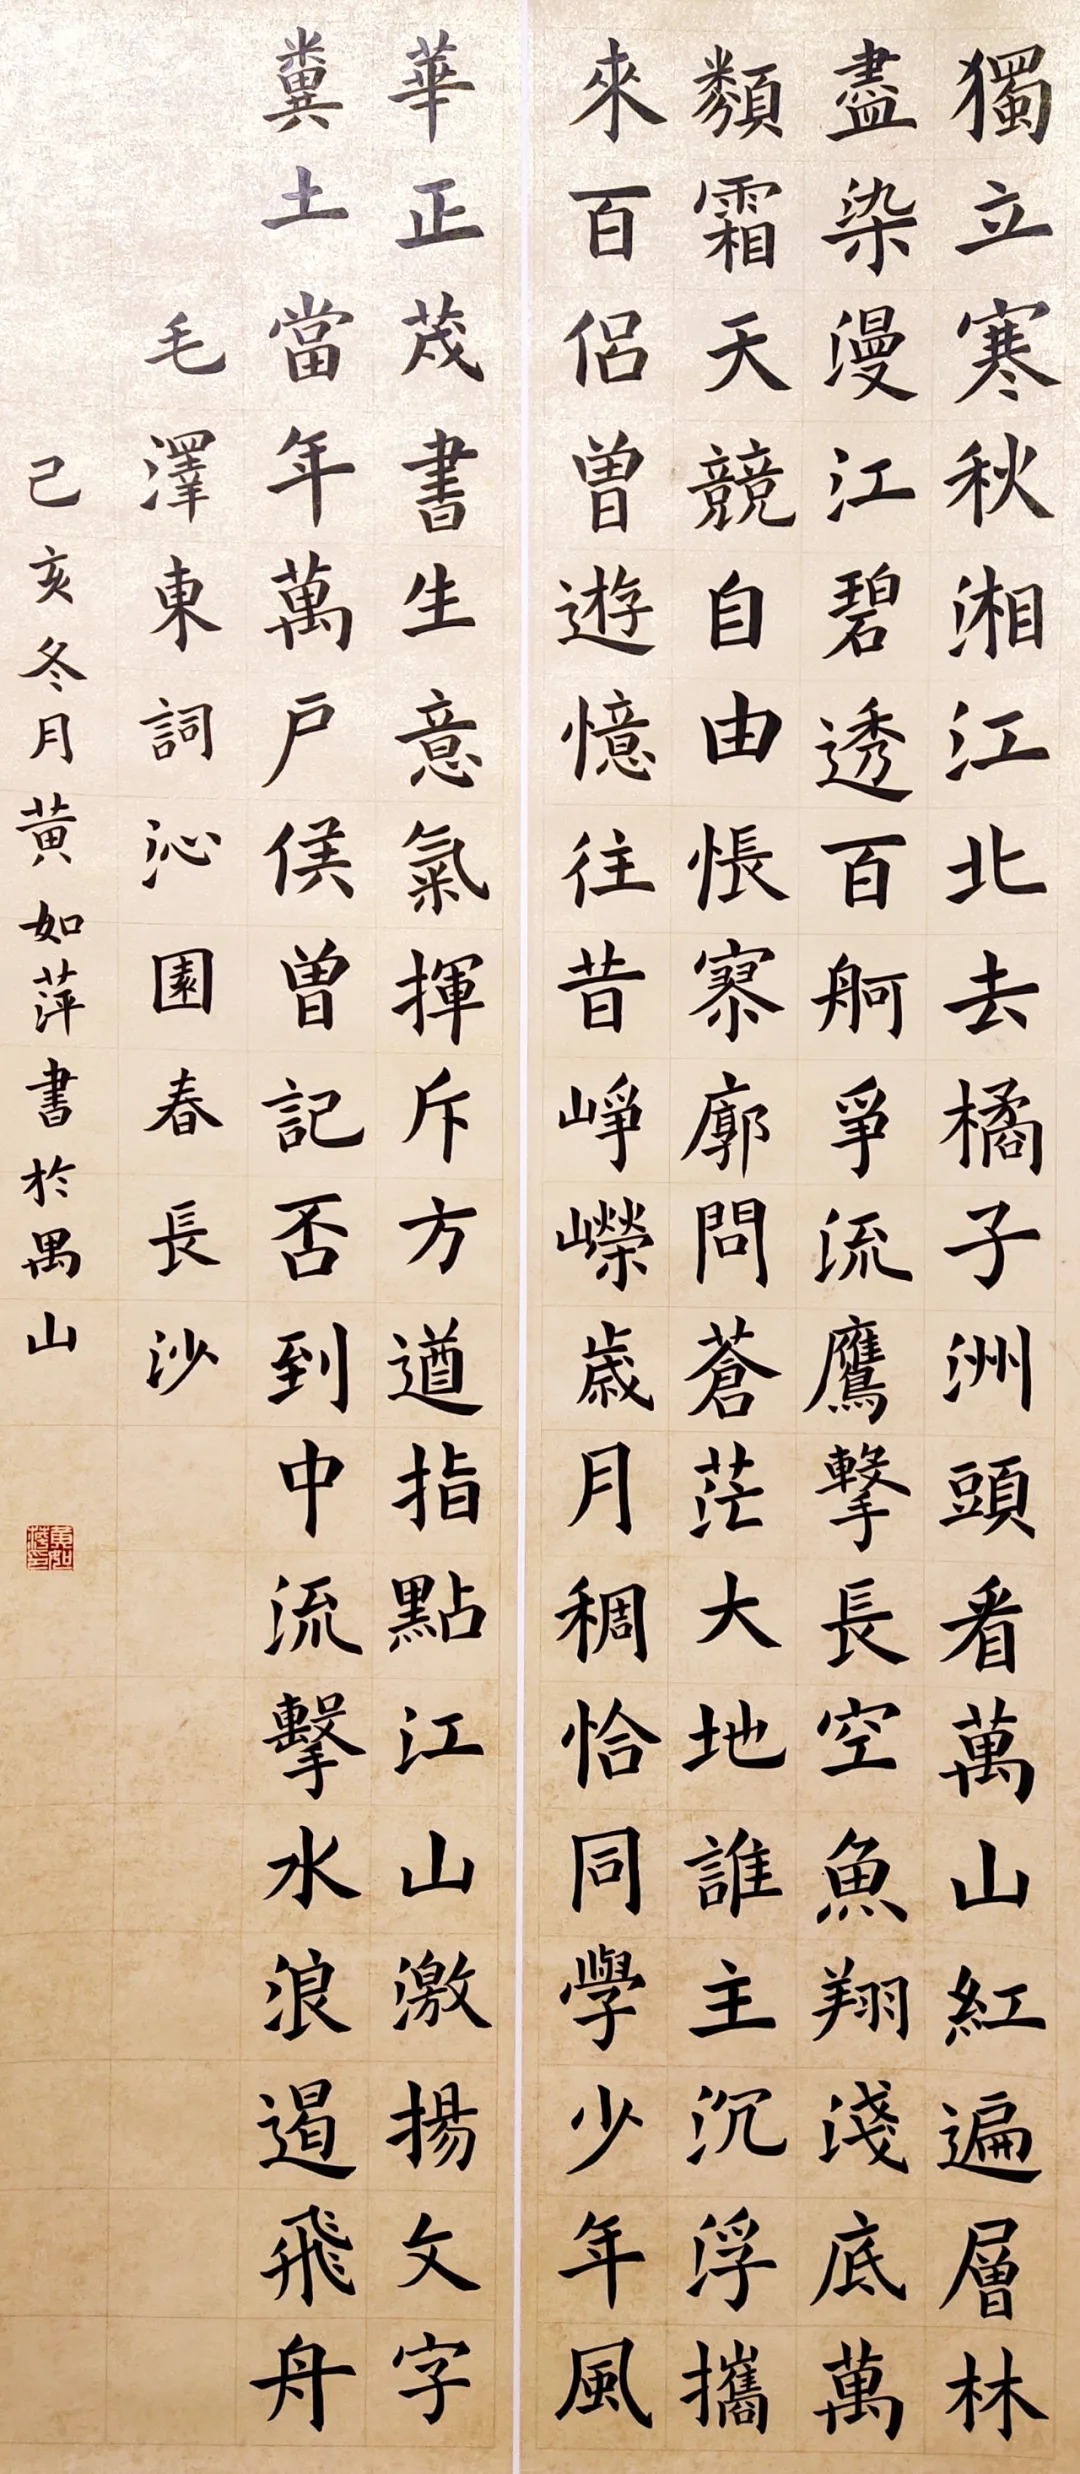 獨立寒秋湘江北去橘子洲頭看萬山紅遍層林
盡染漫江碧透百舸爭流鷹擊長空魚翔淺底萬
類霜天競自由悵寥廓問蒼茫大地誰主沉浮攜
來百侶曾遊憶往昔崢嶸歲月稠恰同學少年風
華正茂書生意氣揮斥方遒指點江山激揚文字
糞土當年萬戶侯曾記否到中流擊水浪遏飛舟
毛澤東詞沁園春長沙
己亥冬月黃如萍書於禺山